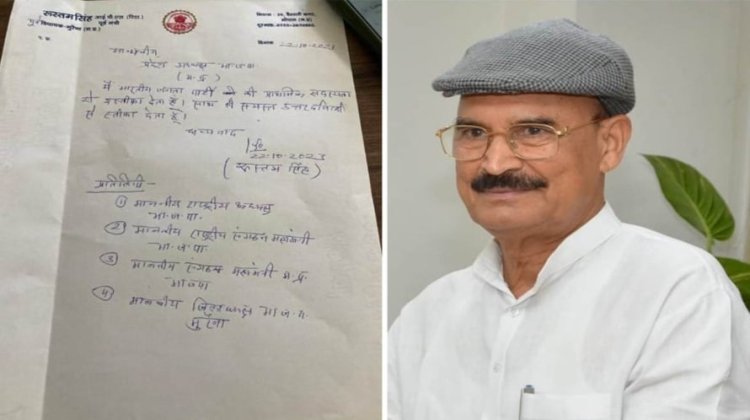 रुस्तम सिंह आई पी एस (रिटा.)
पूर्व मंत्री
पूर्व विधायक-मुरैना (म.प्र.)
भोपाल (म.प्र.)
दिनांक 22.10.2023
माननीय
प्रदेश अध्यक्ष भा.ज.पा.
(म.प्र)
में भारतीय जनता पार्टी की प्राथमिक सदस्यता
से इस्तीफा देता हूँ। साथ ही समस्त उत्तरदायित्वों
से स्तीफा देता हूँ।
धन्यवाद
22.10.2023
(रुस्तम सिंह)
प्रतिलिपि -
① माननीय राष्ट्रीय अध्यक्ष
भा.ज.पा.
② माननीय राष्ट्रीय संगठन महामंत्री
भा.ज.पा.
③ माननीय संगठन महामंत्री म.प्र
भाजपा
④ माननीय जिलाध्यक्ष भा.ज.पा.
मुरैना